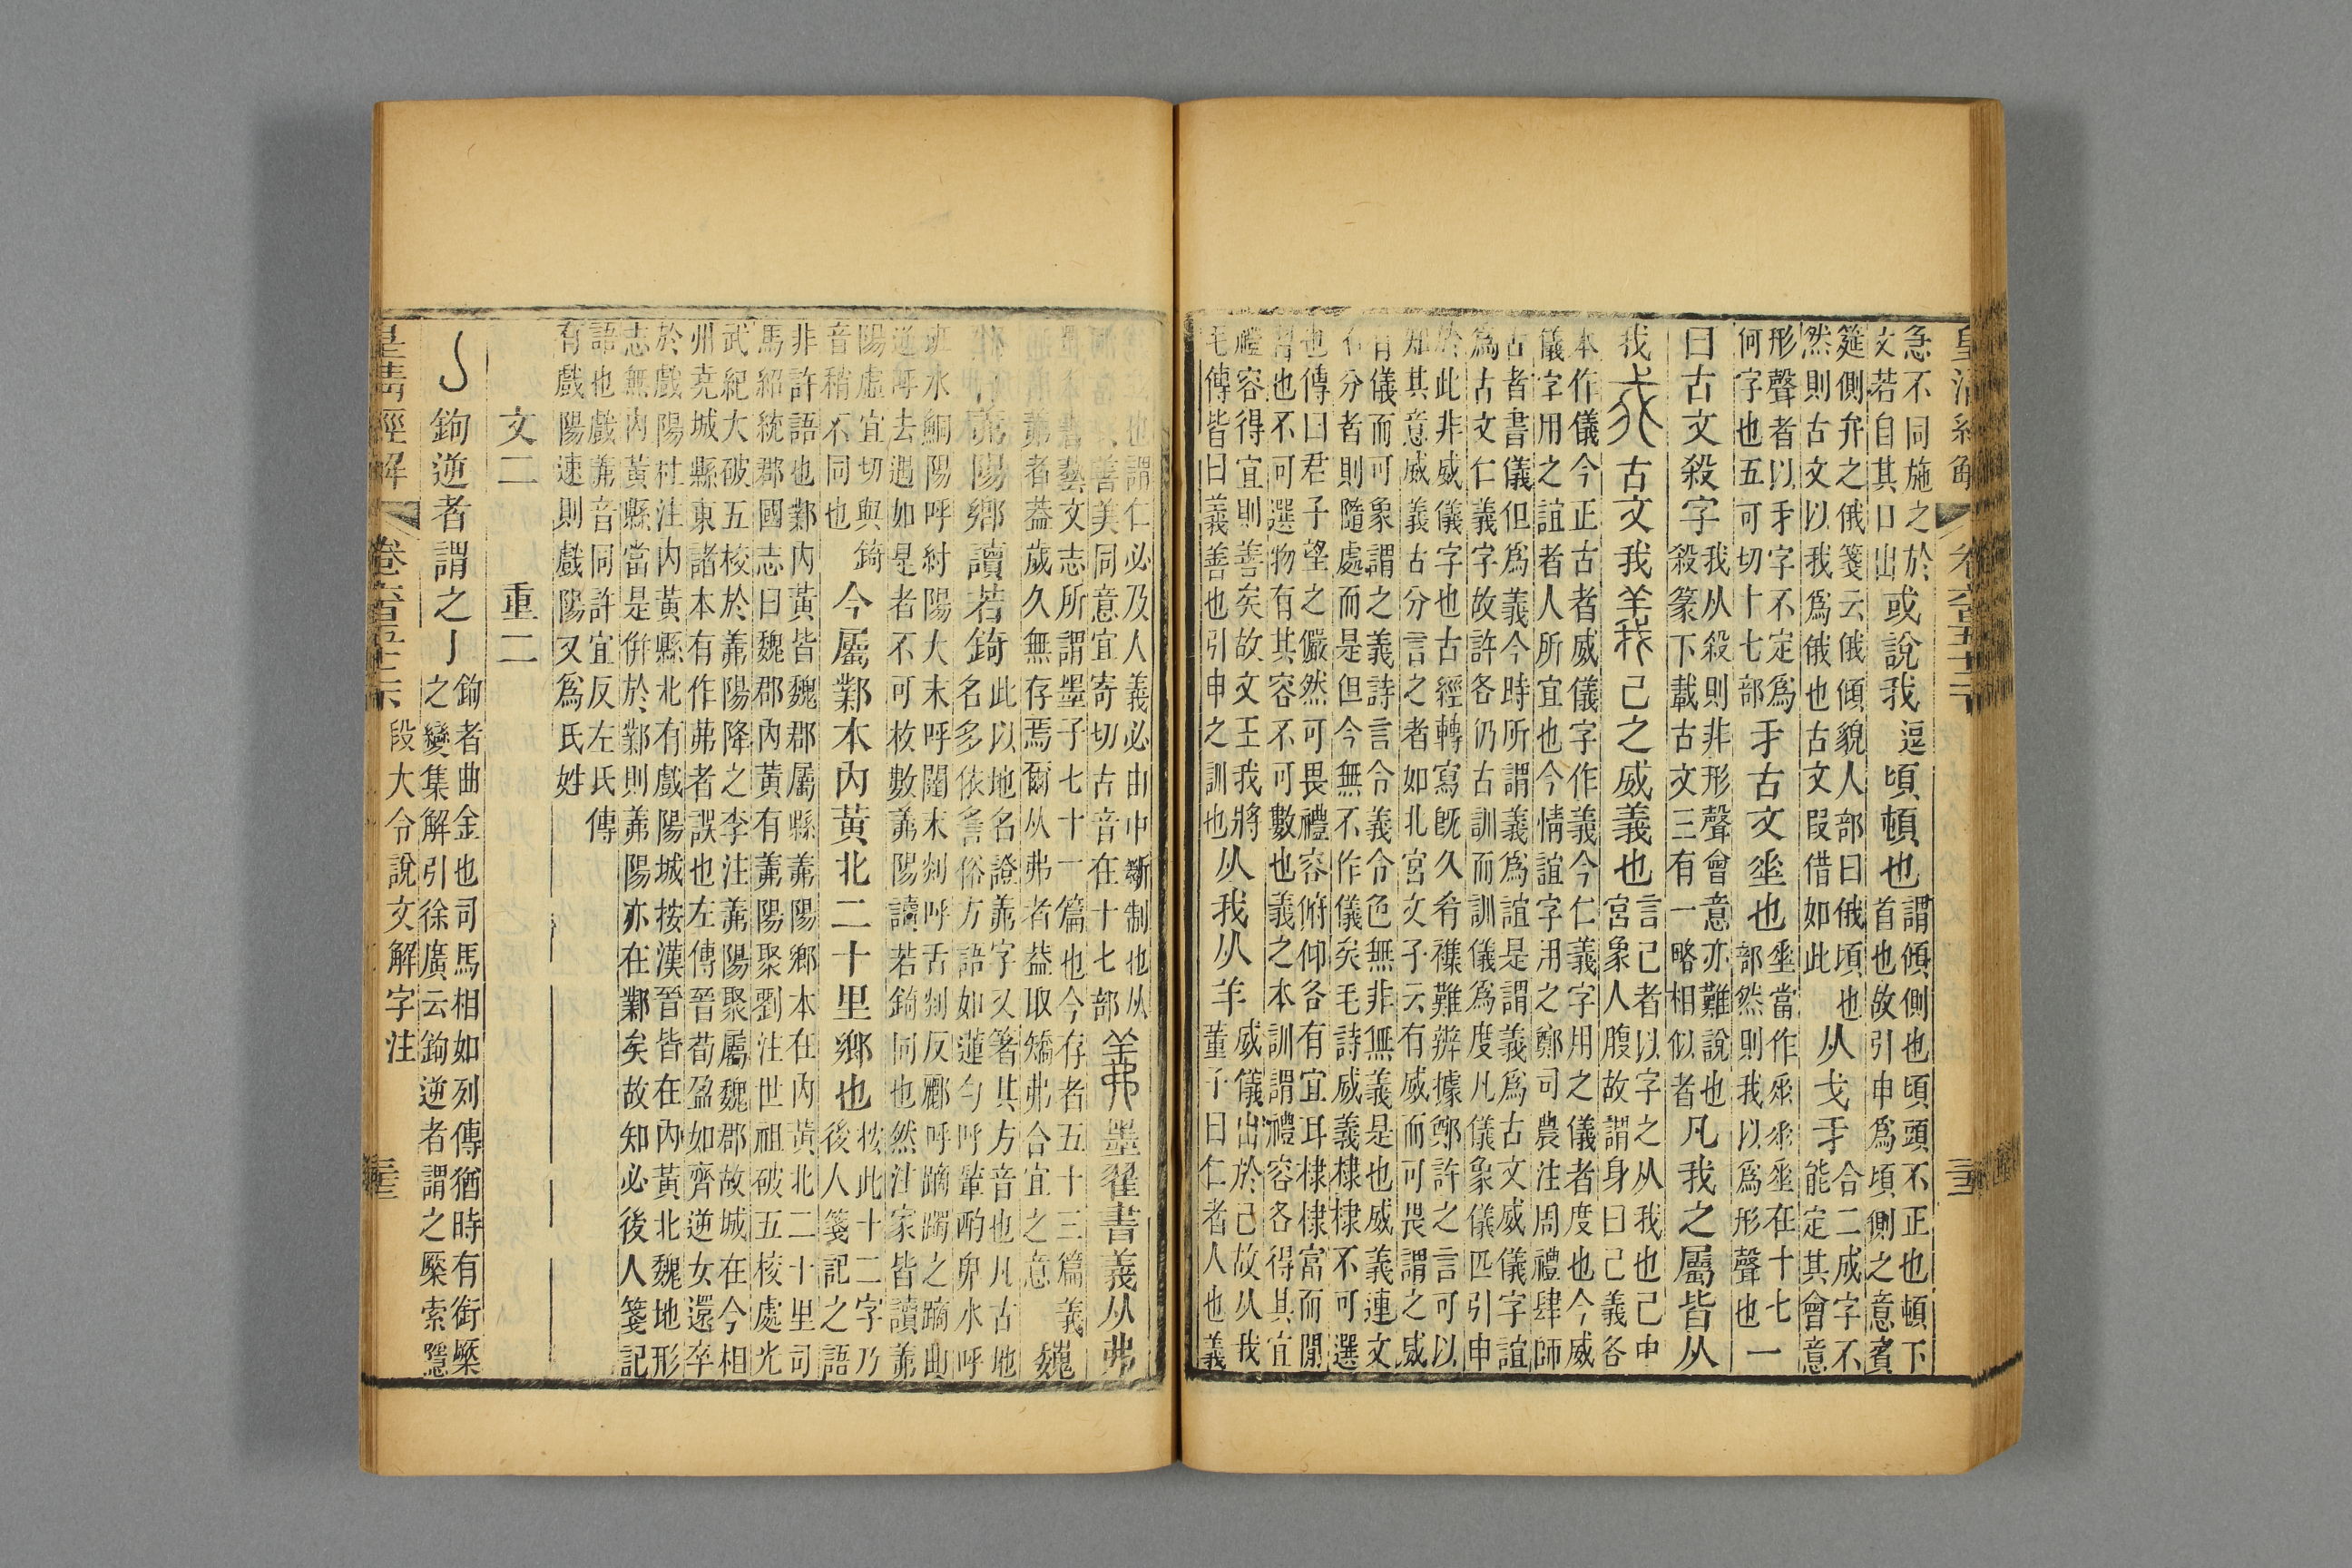 急不同施之於
文若自其口出
或說我
逗
頃頓也
謂傾側也頃頭不正也頓下
首也故引申爲頃側之意賓
筵側弁之俄箋云俄傾貌人部曰俄頃也
然則古文以我爲俄也古文叚借如此
从戈𠄒
合二成字不
能定其會意
形聲者以𠄒字不定爲
何字也五可切十七部
𠄒古文𠂹也
𠂹當作𠂹𠂹在十七
部然則我以爲形聲也
一
曰古文殺字
我从殺則非形聲會意亦難說也
殺篆下載古文三有一略相似者
凡我之屬皆从
我
古文我
義
己之威義也
言己者以字之从我也己中
宮象人腹故謂身曰己義各
本作儀今正古者威儀字作義今仁義字用之儀者度也今威
儀字用之誼者人所宜也今情誼字用之鄭司農注周禮肆師
古者書儀但爲義今時所謂義爲誼是謂義爲古文威儀字誼
爲古文仁義字故許各仍古訓而訓儀爲度凡儀象儀匹引申
於此非威儀字也古經轉寫旣久肴襍難辨據鄭許之言可以
知其意威義古分言之者如北宮文子云有威而可畏謂之威
有儀而可象謂之義詩言令義令色無非無義是也威義連文
不分者則隨處而是但今無不作儀矣毛詩威義棣棣不可選
也傳曰君子望之儼然可畏禮容俯仰各有宜耳棣棣富而閒
習也不可選物有其容不可數也義之本訓謂禮容各得其宜
禮容得宜則善矣故文王我將
毛傳皆曰義善也引申之訓也
从我从羊
威儀出於己故从我
董子曰仁者人也義
皇清經解
三
也謂仁必及人義必由中斷制也从
善美同意宜寄切古音在十七部
羛
墨翟書義从弗
書藝文志所謂墨子七十一篇也今存者五十三篇義
羛者葢歲久無存焉爾从弗者葢取矯弗合宜之意
魏
羛陽鄉讀若錡
此以地名證羛字又箸其方音也凡古地
名多依舊俗方語如蓮勺呼輦酌卑水呼
班水鮦陽呼紂陽大末呼闥末剡呼舌剡反酈呼蹢躅之蹢曲
逆呼去遇如是者不可枚數羛陽讀若錡同也然注家皆讀羛
陽虛宜切與錡
音稍不同也
今屬鄴本內黃北二十里鄉也
按此十二字乃
後人箋記之語
非許語也鄴內黃皆魏郡屬縣羛陽鄉本在內黃北二十里司
馬紹統郡國志曰魏郡內黃有羛陽聚劉注世祖破五校處光
武紀大破五校於羛陽降之李注羛陽聚屬魏郡故城在今相
州堯城縣東諸本有作茀者誤也左傳晉荀盈如齊逆女還卒
於戲陽杜注內黃縣北有戲陽城按漢晉皆在內黃北魏地形
志無內黃縣當是併於鄴則羛陽亦在鄴矣故知必後人箋記
語也戲羛音同許宜反左氏傳
有戲陽速則戲陽又爲氏姓
文二　重二
亅
鉤逆者謂之亅
鉤者曲金也司馬相如列傳猶時有銜橜
之變集解引徐廣云鉤逆者謂之橜索隱
皇清經解
卷六百五十二下
段大令說文解字注
三